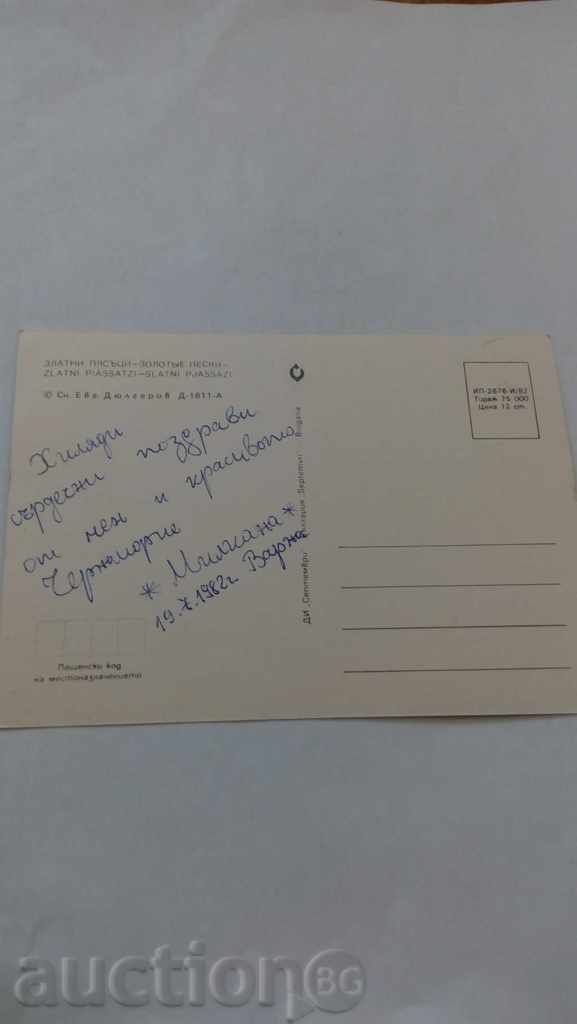 ЗЛАТНИ ПЯСЪЦИ–ЗОЛОТЫЕ ПЕСКИ–
ZLATNI PIASSATZI–SLATNI PJASSAZI
© Сн. Евг. Дюлгеров Д-1611-А
Хиляди
сърдечни поздрави
от мен и красивото
Черноморие
*Милкана*
19.X.1982г. Варна
Пощенски код
на местоназначението
ДИ „Септември" България „Septemvri" Bulgarie
ИП-2676-И/82
Тираж 75 000
Цена 12 ст.
auctionBG